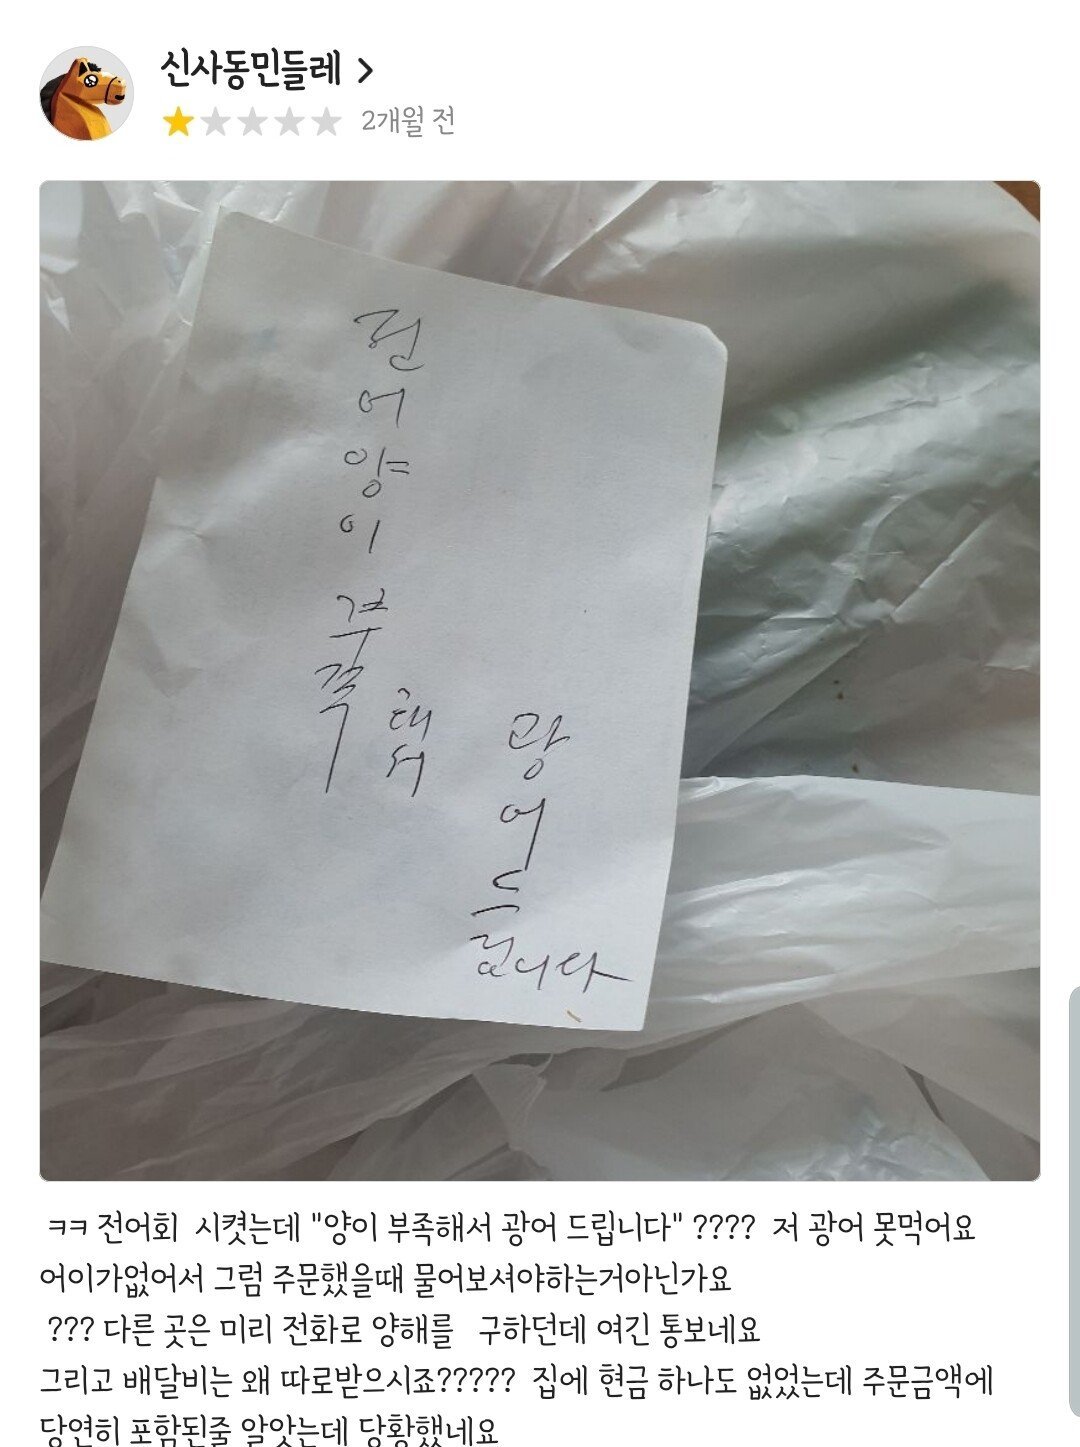 신사동민들레 >
2개월 전
전
어
양
이
부
족
해
서
광
어
드
립니다
ㅋㅋ 전어회 시켯는데 "양이 부족해서 광어 드립니다" ???? 저 광어 못먹어요
어이가없어서 그럼 주문했을때 물어보셔야하는거아닌가요
??? 다른 곳은 미리 전화로 양해를 구하던데 여긴 통보네요
그리고 배달비는 왜 따로받으시죠????? 집에 현금 하나도 없었는데 주문금액에
당연히 포함된줄 알앗는데 당황했네요